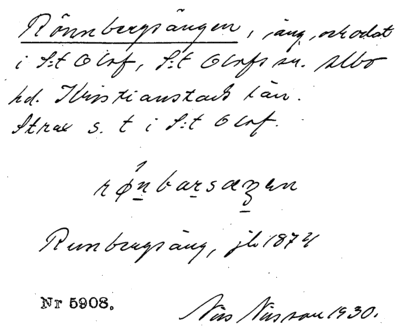 Rönnbergsängen, äng, och odat
i S:t Olof, S:t Olofs sn. Albo
hd. Kristianstads län.
Strax s. t i S:t Olof.
Runbergsäng, jb 1874
Nr 5908.
Nils Nilsson 1930.